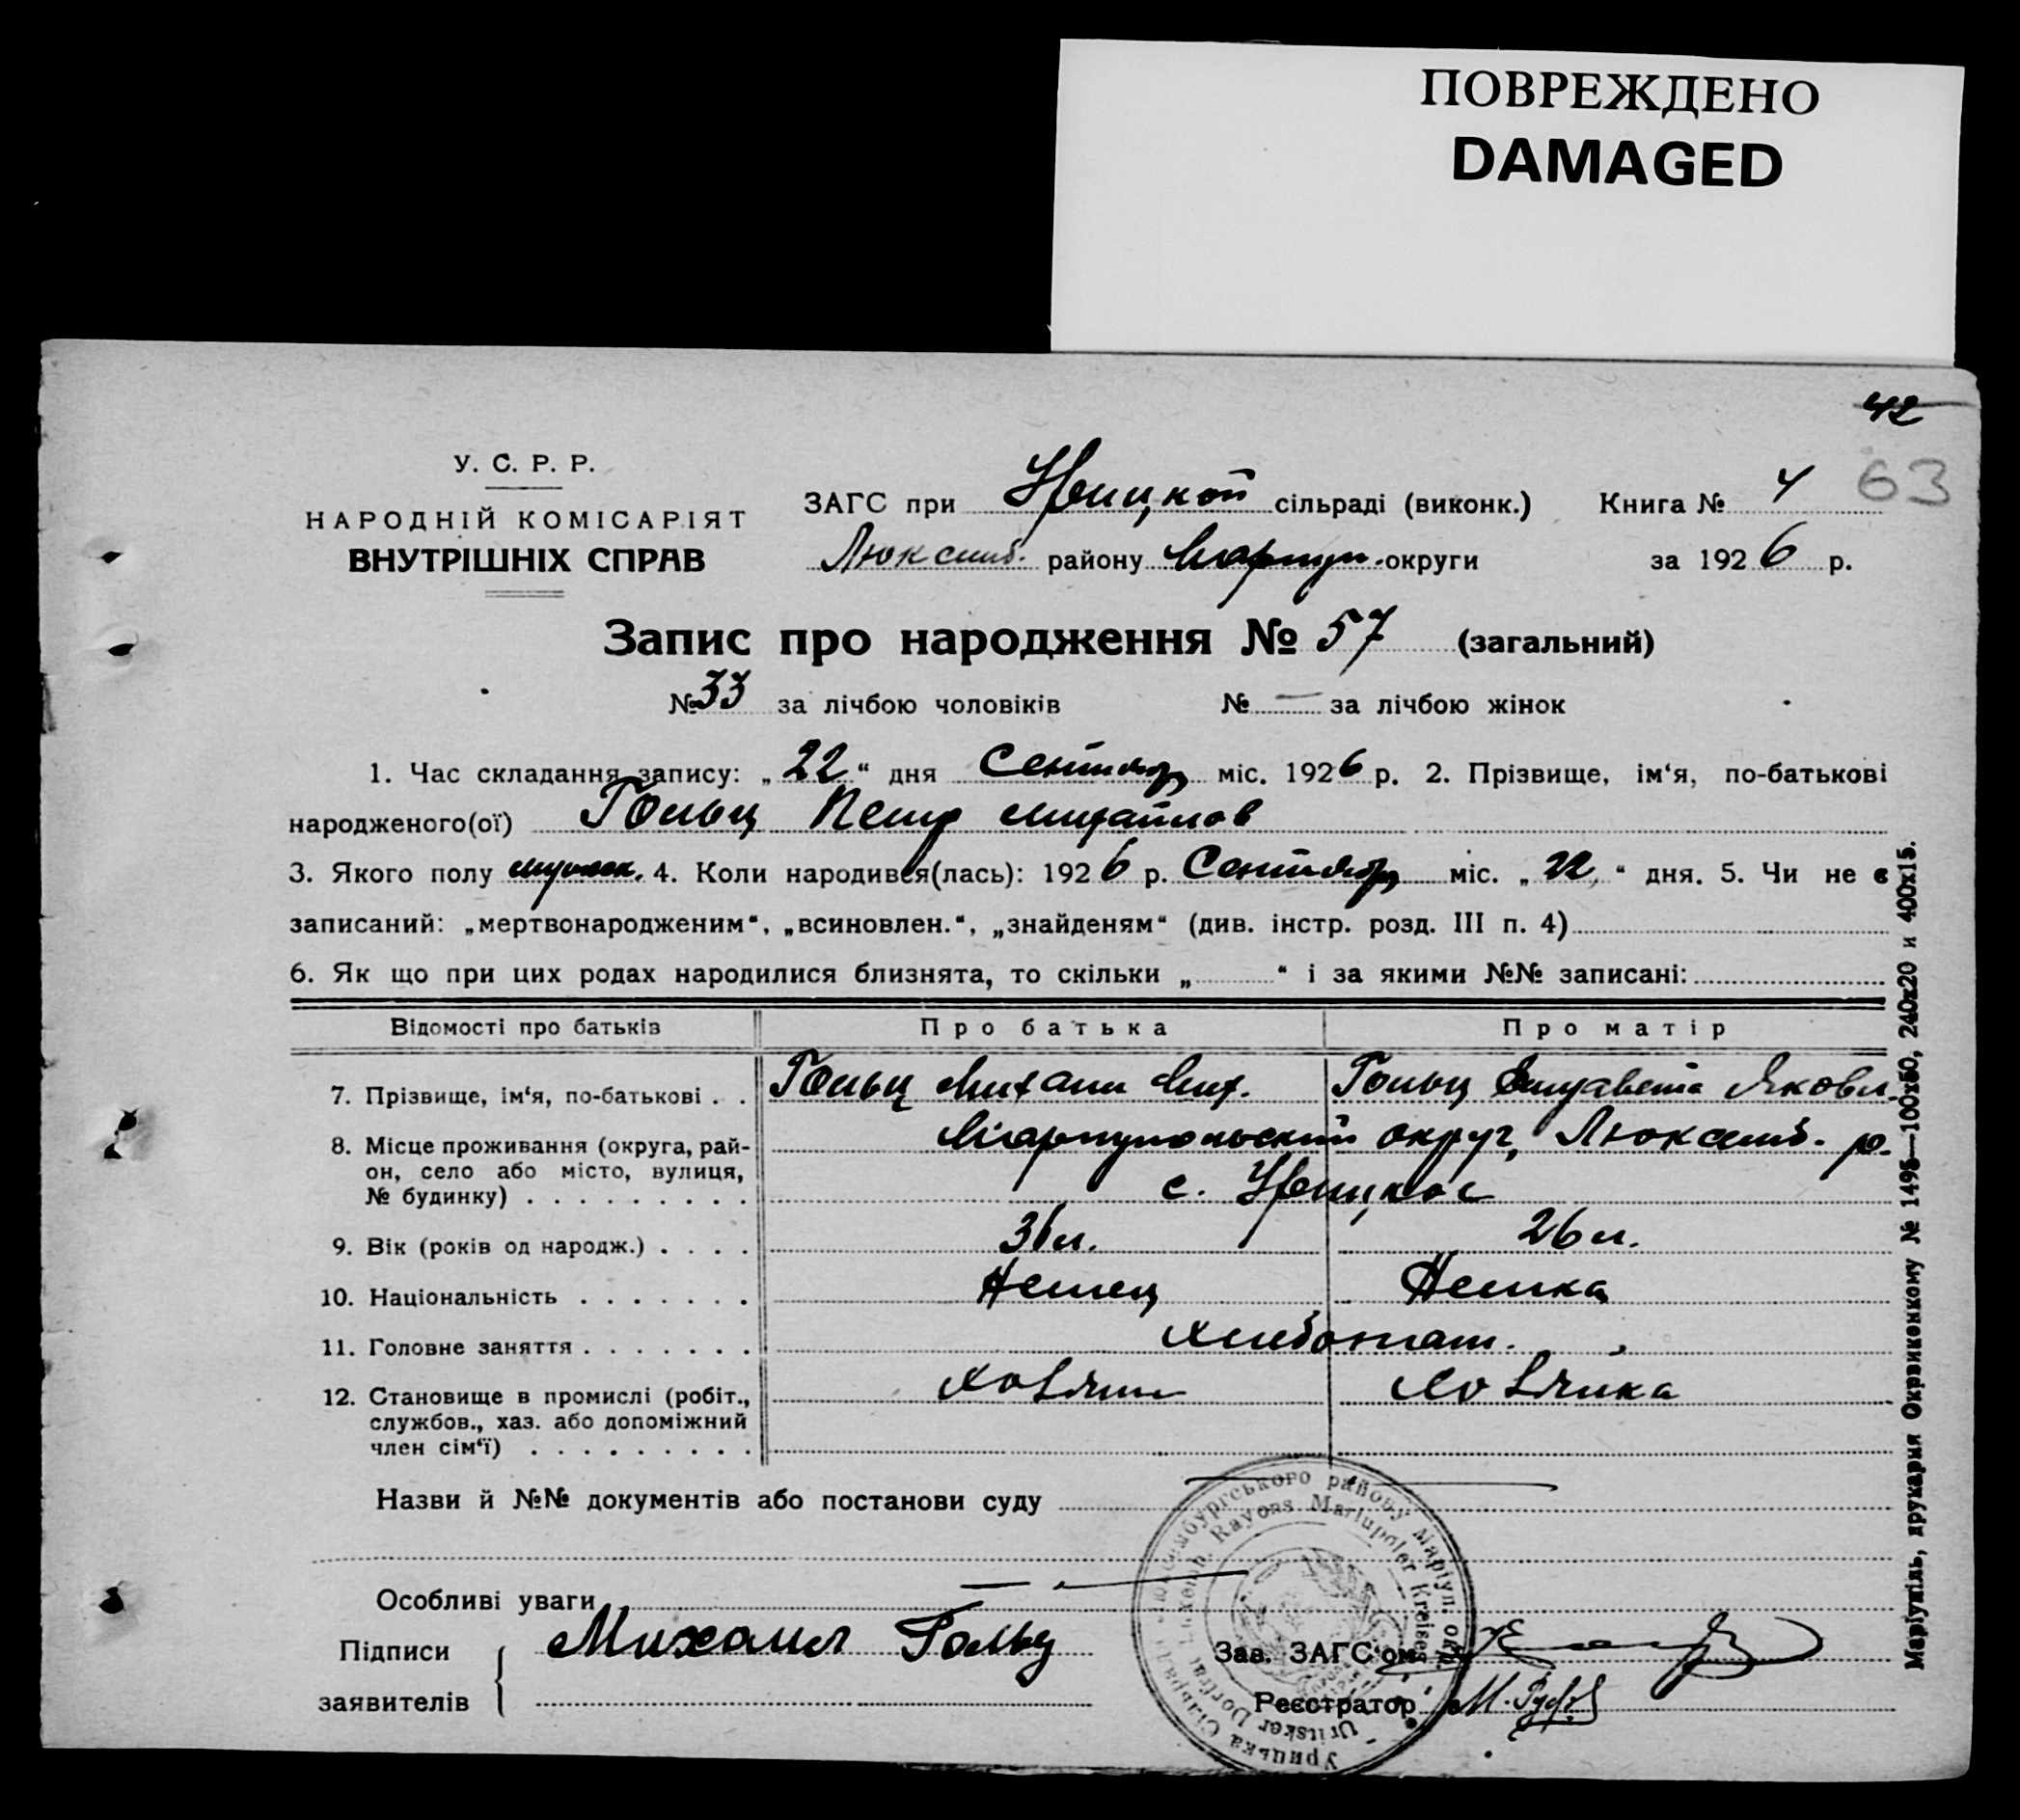 ПОВРЕЖДЕНО
DAMAGED
42
63
У. С. Р. Р.
НАРОДНІЙ КОМІСАРІЯТ
ВНУТРІШНІХ СПРАВ
ЗАГС при Урицкой сільраді (виконк.) Книга № 4
Люксемб. району Мариуп. округи за 1926 р.
Запис про народження № 57 (загальний)
№ 33 за лічбою чоловіків № — за лічбою жінок
1. Час складання запису: „22“ дня Сентября міс. 1926 р. 2. Прізвище, ім‘я, по-батькові
народженого(ої) Гольц Петр Михайлов
3. Якого полу мужеск. 4. Коли народився(лась): 1926 р. Сентября міс. „22“ дня. 5. Чи не є
записаний: „мертвонародженим“, „всиновлен.“, „знайденям“ (див. інстр. розд. III п. 4)
6. Як що при цих родах народилися близнята, то скільки „ “ і за якими №№ записані:
Відомості про батьків Про батька Про матір
7. Прізвище, ім‘я, по-батькові . . Гольц Михаил Мих. Гольц Елизавета Яковл.
8. Місце проживання (округа, рай- Мариупольский округ, Люксемб. р.
он, село або місто, вулиця,
№ будинку) . . . . . . . . . с. Урицкое
9. Вік (років од народж.) . . . . 36 л. 26 л.
10. Національність . . . . . . . Немец Немка
11. Головне заняття . . . . . . . хлебопаш.
12. Становище в промислі (робіт., хозяин хозяйка
службов., хаз. або допоміжний
член сім‘ї) . . . . . . . . .
Назви й №№ документів або постанови суду
Особливі уваги
Підписи Михаил Гольц Зав. ЗАГС‘ом
заявителів Реєстратор М.
Урицька Сільрада Люксембургського району Маріуп. окр.
Uritsker Dorfrat Luxemb. Rayons Mariupoler Kreises
Маріупіль, друкарня Окрвиконкому № 1495—100х50, 240х20 и 400х15.